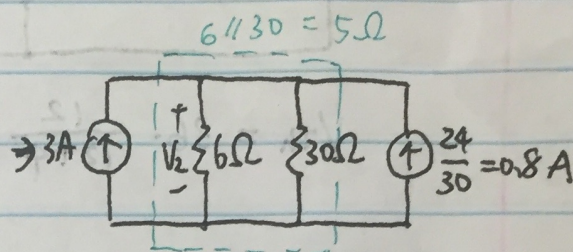 6//30 = 5Ω
→ 3A
+
V₂
-
6Ω
30Ω
24/30 = 0.8 A